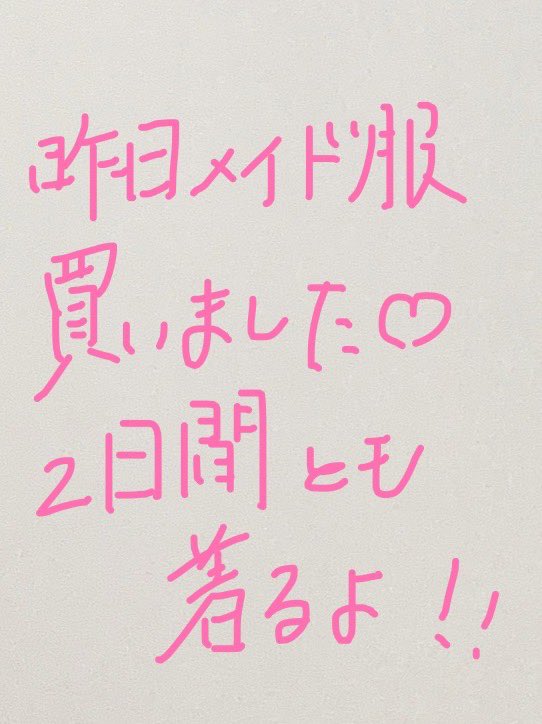 昨日メイド服
買いました♡
2日間とも
着るよ!!